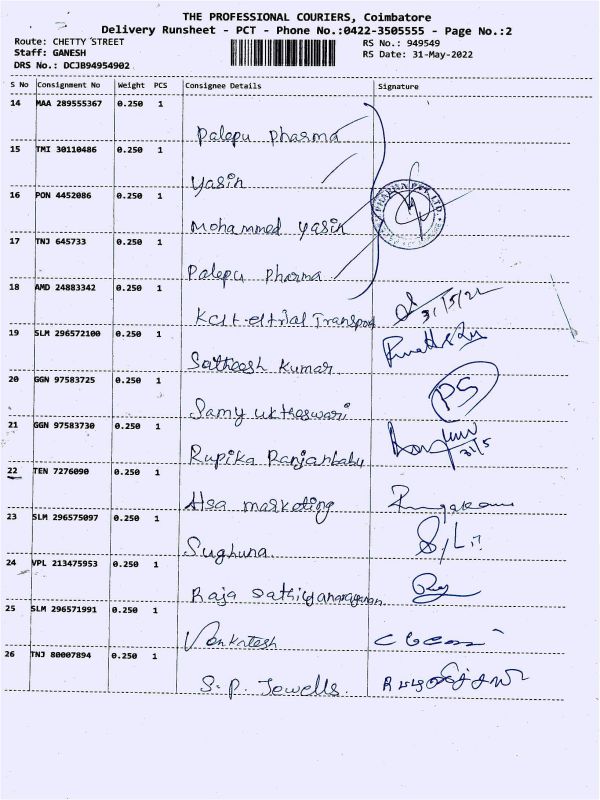 THE PROFESSIONAL COURIERS, Coimbatore
Delivery Runsheet - PCT - Phone No.:0422-3505555 - Page No.:2
Route: CHETTY STREET
RS No.: 949549
Staff: GANESH
RS Date: 31-May-2022
DRS No.: DCJB94954902
S No Consignment No Weight PCS Consignee Details Signature
14 MAA 289555367 0.250 1
Palepu Pharma
15 TMI 30110486 0.250 1
Yasin
16 PON 4452086 0.250 1
Mohammed Yasin
PHARMA PVT. LTD.
17 TNJ 645733 0.250 1
Palepu Pharma
18 AMD 24883342 0.250 1
31/5/22
19 SLM 296572100 0.250 1
Satheesh Kumar
20 GGN 97583725 0.250 1
PS
Samy
21 GGN 97583730 0.250 1
Rupika Ranjanbabu
31/5
22 TEN 7276090 0.250 1
Hsa marketing
23 SLM 296575097 0.250 1
Sughuna.
24 VPL 213475953 0.250 1
Raja Sathiyanarayanan
25 SLM 296571991 0.250 1
Venkatesh
26 TNJ 80007894 0.250 1
S. P. Jewells.